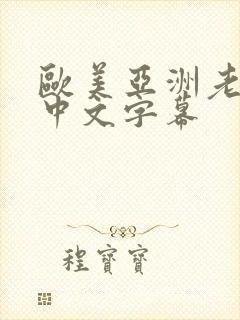 歐美亞洲老
中文字幕
程寶寶